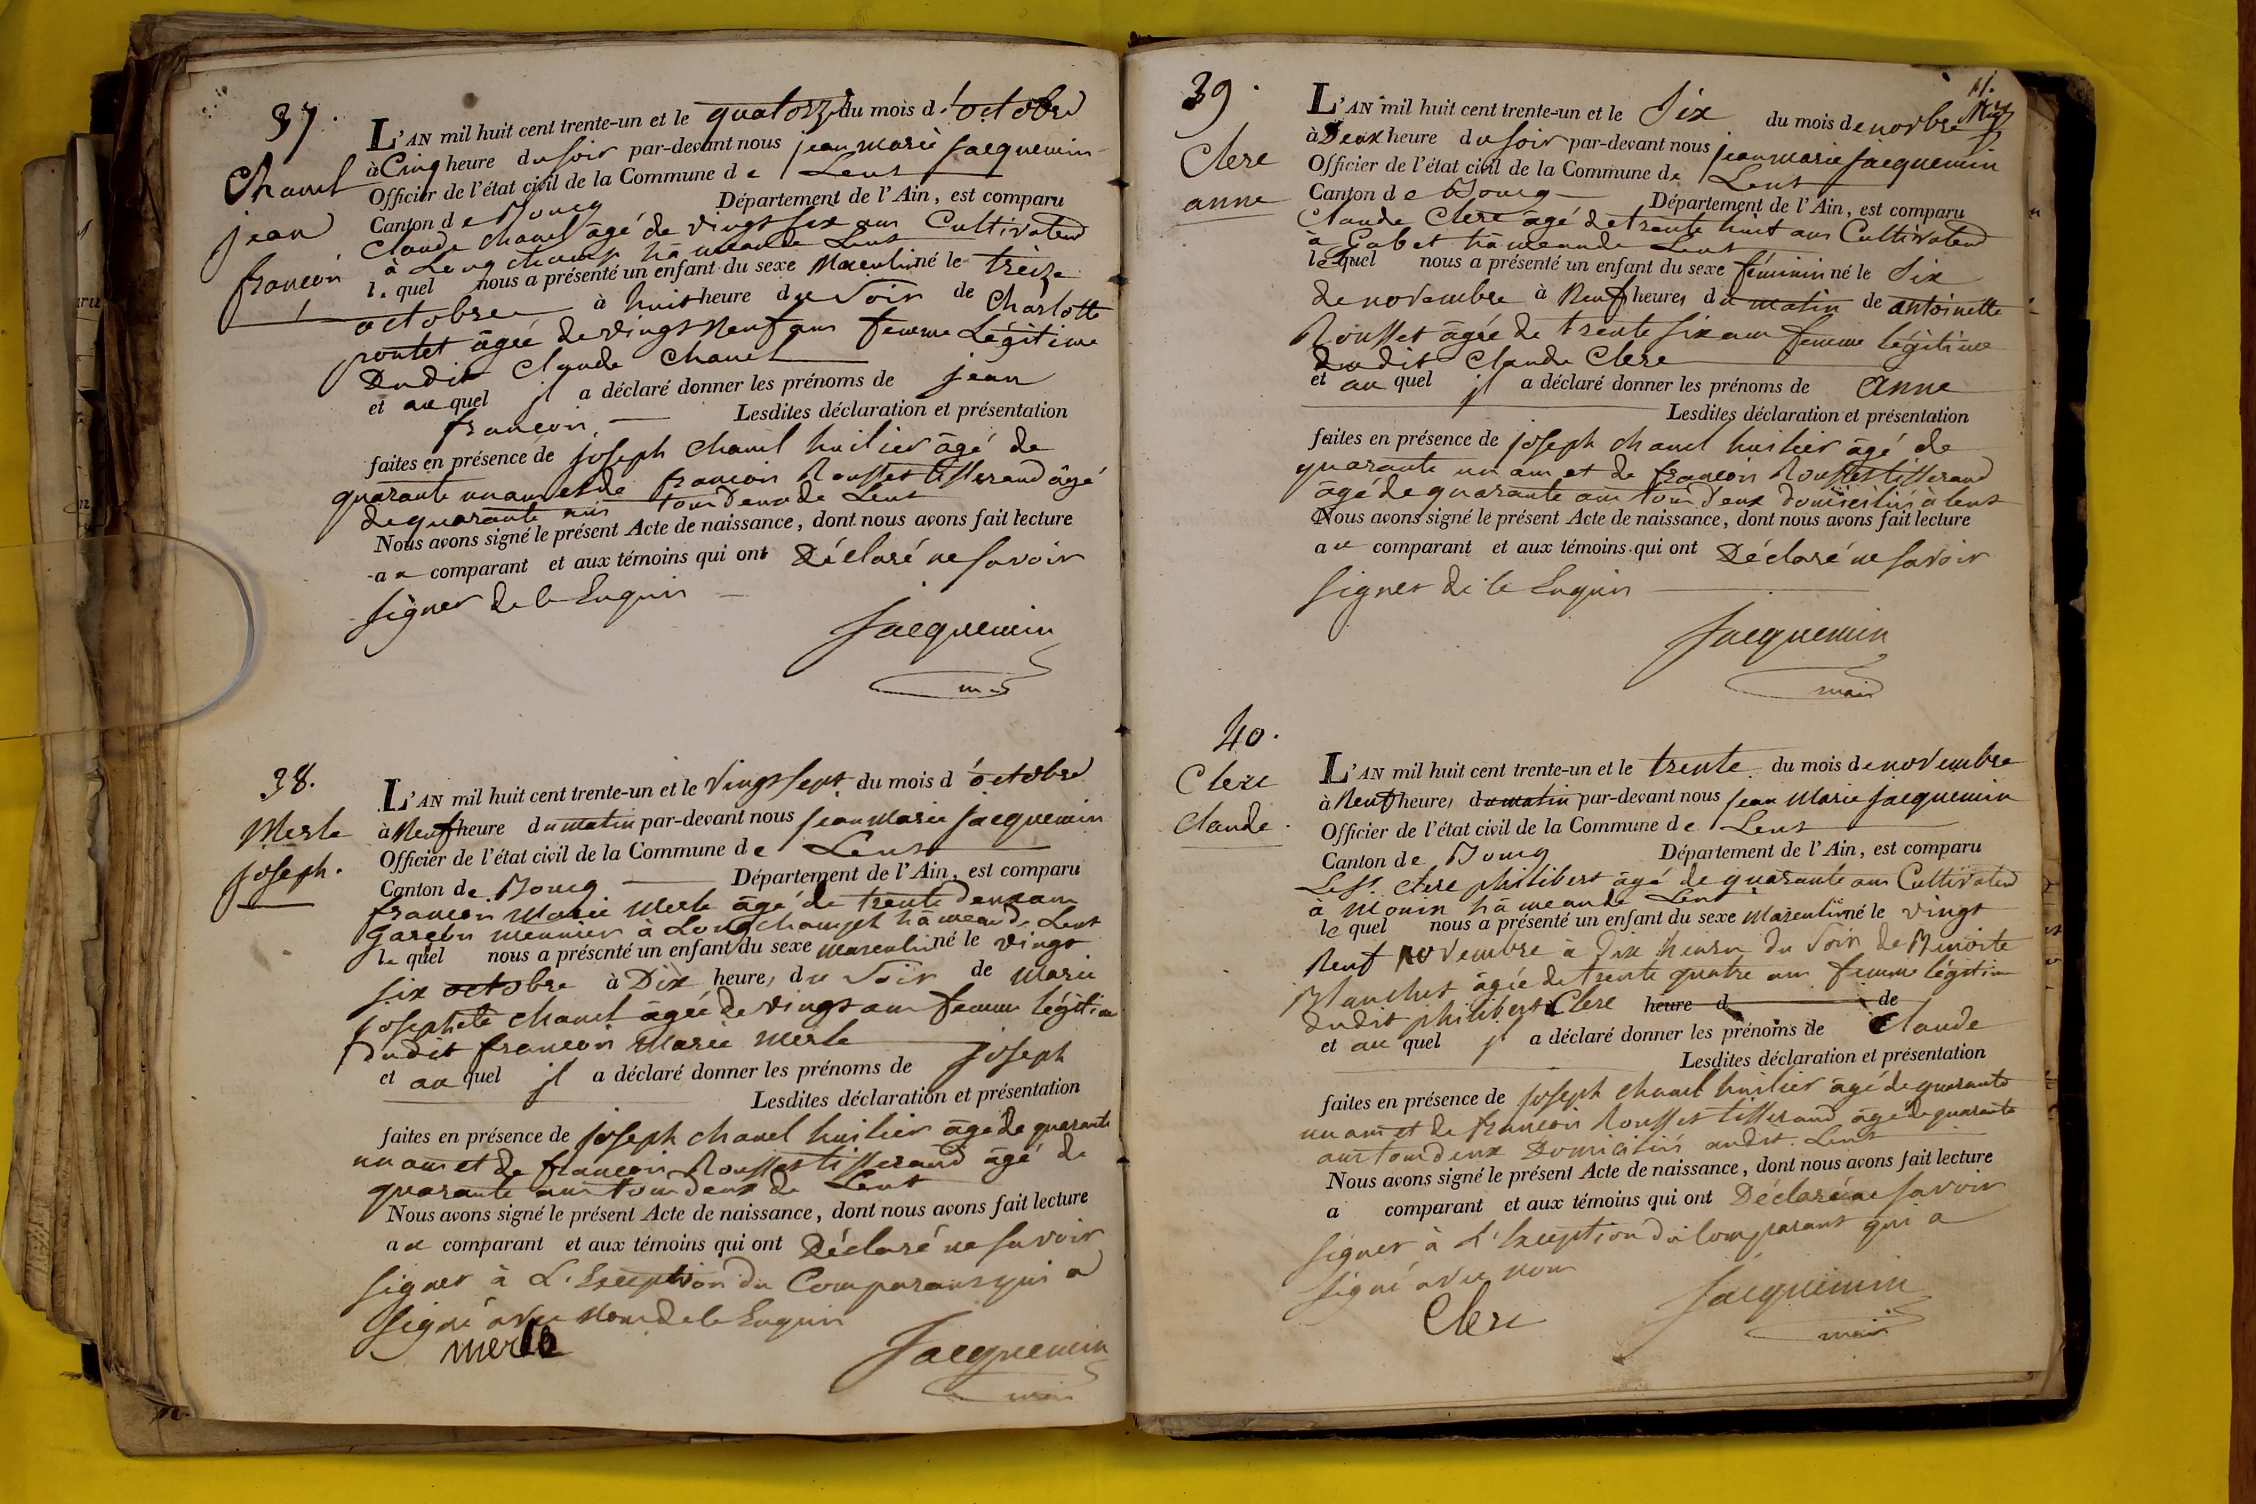 37.
Chanel
jean
françois
L'AN mil huit cent trente-un et le quatorze du mois d'octobre
à Cinq heure du soir par-devant nous jean marie jacquemin
Officier de l'état civil de la Commune de Lent
Canton de Bourg Département de l'Ain, est comparu
Claude chanel âgé de vingt six ans Cultivateur
à Longchamp hameau de Lent
lequel nous a présenté un enfant du sexe Masculin né le treize
octobre à huit heure du Soir de Charlotte
pontet âgée de vingt Neuf ans femme Légitime
Dudit Claude Chanel
et auquel jl a déclaré donner les prénoms de jean
françois. Lesdites déclaration et présentation
faites en présence de joseph chanel huilier âgé de
quarante un ans et de françois Rousset tisserand âgé
de quarante ans tous Deux de Lent
Nous avons signé le présent Acte de naissance, dont nous avons fait lecture
au comparant et aux témoins qui ont Déclaré ne savoir
signer de le Enquis
Jacquemin
38.
Merle
joseph.
L'AN mil huit cent trente-un et le Vingt sept du mois d'octobre
à Neuf heure du matin par-devant nous jean marie jacquemin
Officier de l'état civil de la Commune de Lent
Canton de Bourg Département de l'Ain, est comparu
françois Marie Merle âgé de trente deux ans
Garçon meunier à Longchamph hameau de Lent
le quel nous a présenté un enfant du sexe masculin né le vingt
six octobre à Dix heures du Soir de Marie
josephete chanel âgée de vingt ans femme légitime
dudit françois Marie Merle
et auquel jl a déclaré donner les prénoms de joseph
Lesdites déclaration et présentation
faites en présence de joseph chanel huilier âgé de quarante
un ans et de françois Rousset tisserand âgé de
quarante ans tous deux de Lent
Nous avons signé le présent Acte de naissance, dont nous avons fait lecture
au comparant et aux témoins qui ont Déclaré ne savoir
signer à L'Exception du Comparant qui a
signé avec nous de le Enquis
merle Jacquemin
maire
11.
39.
Clere
anne
L'AN mil huit cent trente-un et le Six du mois de novbre
à Deux heure du soir par-devant nous jean marie jacquemin
Officier de l'état civil de la Commune de Lent
Canton de Bourg Département de l'Ain, est comparu
Claude Clere âgé de trente huit ans Cultivateur
à Gabet hameau de Lent
lequel nous a présenté un enfant du sexe féminin né le Six
de novembre à Neuf heures du matin de antoinette
Rousset âgée de trente six ans femme légitime
dudit Claude Clere
et au quel jl a déclaré donner les prénoms de Anne
Lesdites déclaration et présentation
faites en présence de joseph chanel huilier âgé de
quarante un ans et de françois Rousset tisserand
âgé de quarante ans tous deux domiciliés à lent
Nous avons signé le présent Acte de naissance, dont nous avons fait lecture
au comparant et aux témoins qui ont Déclaré ne savoir
signer de le Enquis
Jacquemin
maire
40.
Clere
Claude.
L'AN mil huit cent trente-un et le trente du mois de novembre
à Neuf heures du matin par-devant nous jean Marie jacquemin
Officier de l'état civil de la Commune de Lent
Canton de Bourg Département de l'Ain, est comparu
Le Sr. Clere philibert âgé de quarante ans Cultivateur
à Monin hameau de Lent
le quel nous a présenté un enfant du sexe Masculin né le vingt
Neuf Novembre à Dix heures du Soir de Benoite
Blanchet âgée de trente quatre ans femme légitime
dudit philibert Clere heure d de
et au quel jl a déclaré donner les prénoms de Claude
Lesdites déclaration et présentation
faites en présence de joseph chanel huilier âgé de quarante
un ans et de françois Rousset tisserand âgé de quarante
ans tous deux Domiciliés audit Lent
Nous avons signé le présent Acte de naissance, dont nous avons fait lecture
a comparant et aux témoins qui ont Déclaré ne savoir
signer à L'Exception du Comparant qui a
signé avec nous
Clere Jacquemin
maire